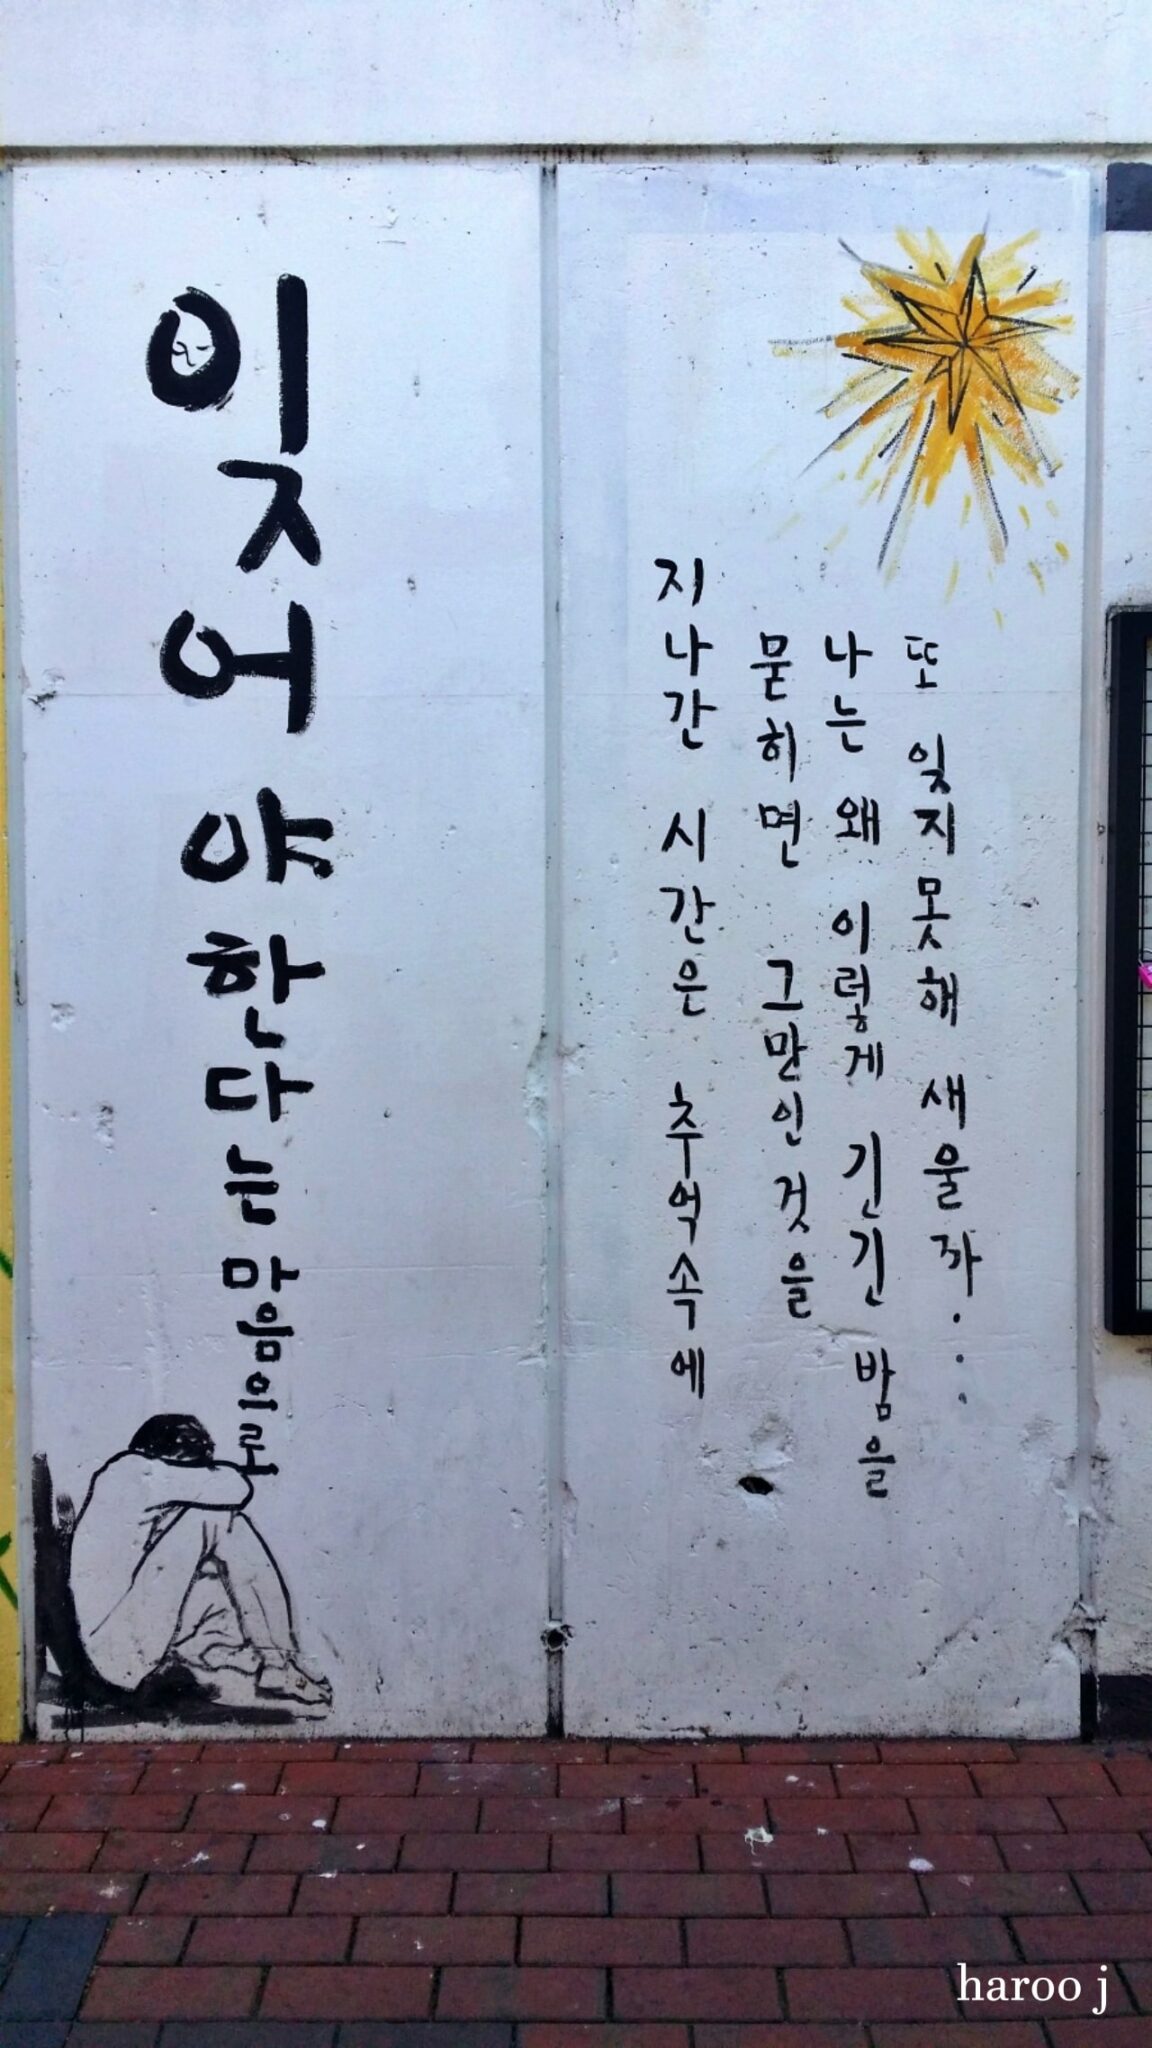 잊어야한다는마음으로
지나간 시간은 추억속에
묻히면 그만인것을
나는 왜 이렇게 긴긴 밤을
또 잊지못해 새울까...
haroo j